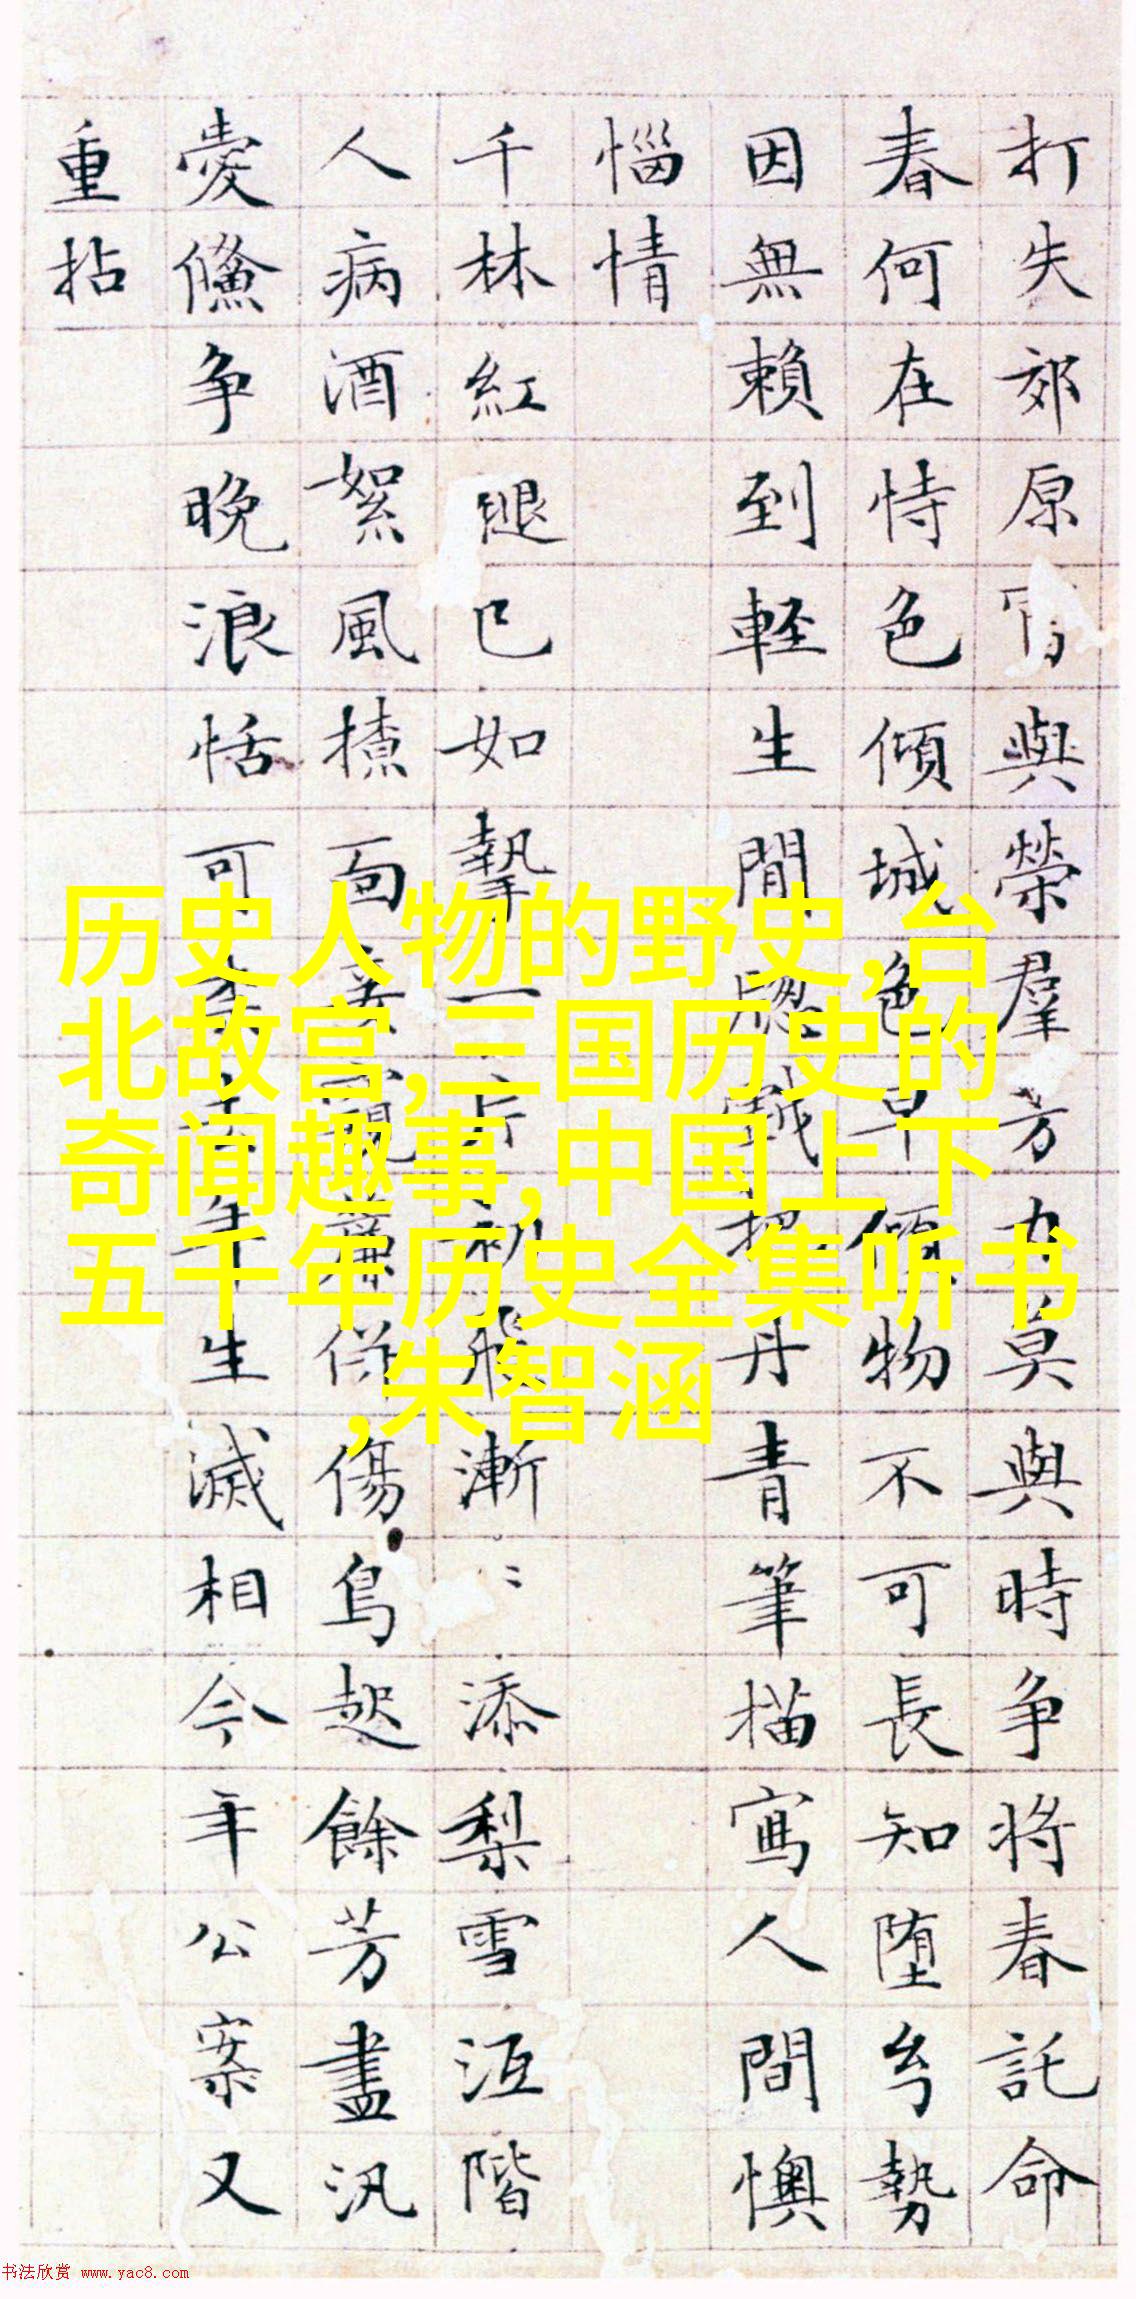 打失郊原與榮羣芳力莫與時争将春託命
春何在恃色傾城色早傾物不可長知堕勢
因無賴到軽生閒丹青筆描寫人間懊
惱情
千林紅已如一片初飛漸〻添梨雪沍階
人病酒絮風面傷鳥起餘芳盡汎
愛争晚浪恬可年生滅相今年公案又
重拈
历史人物的野史,台
北故宫,三国历史的
奇闻趣事,中国上下
五千年历史全集听书
,朱智涵
书法欣赏 www.yac8.com